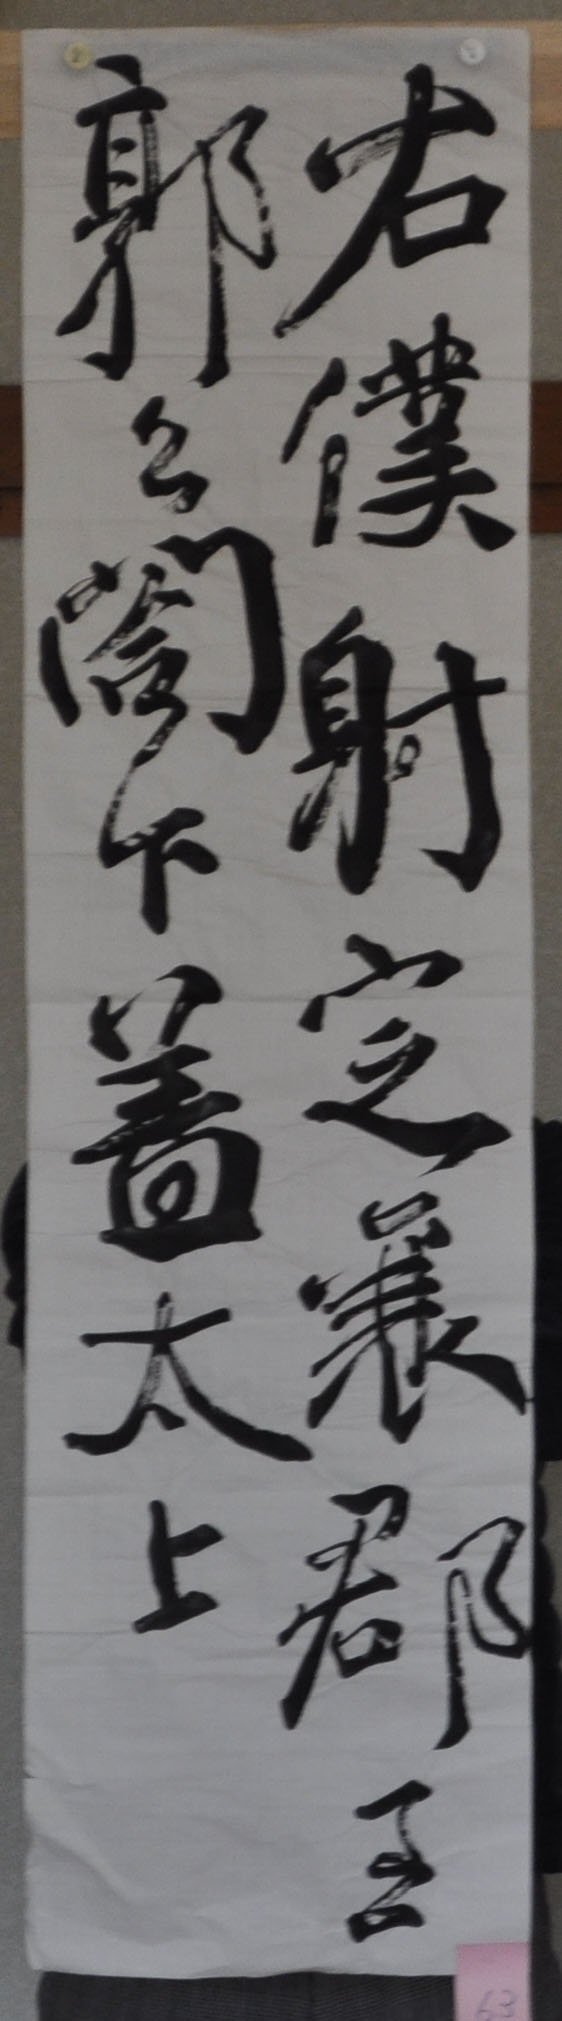 右僕射定襄郡王
郭公閤下蓋太上
63